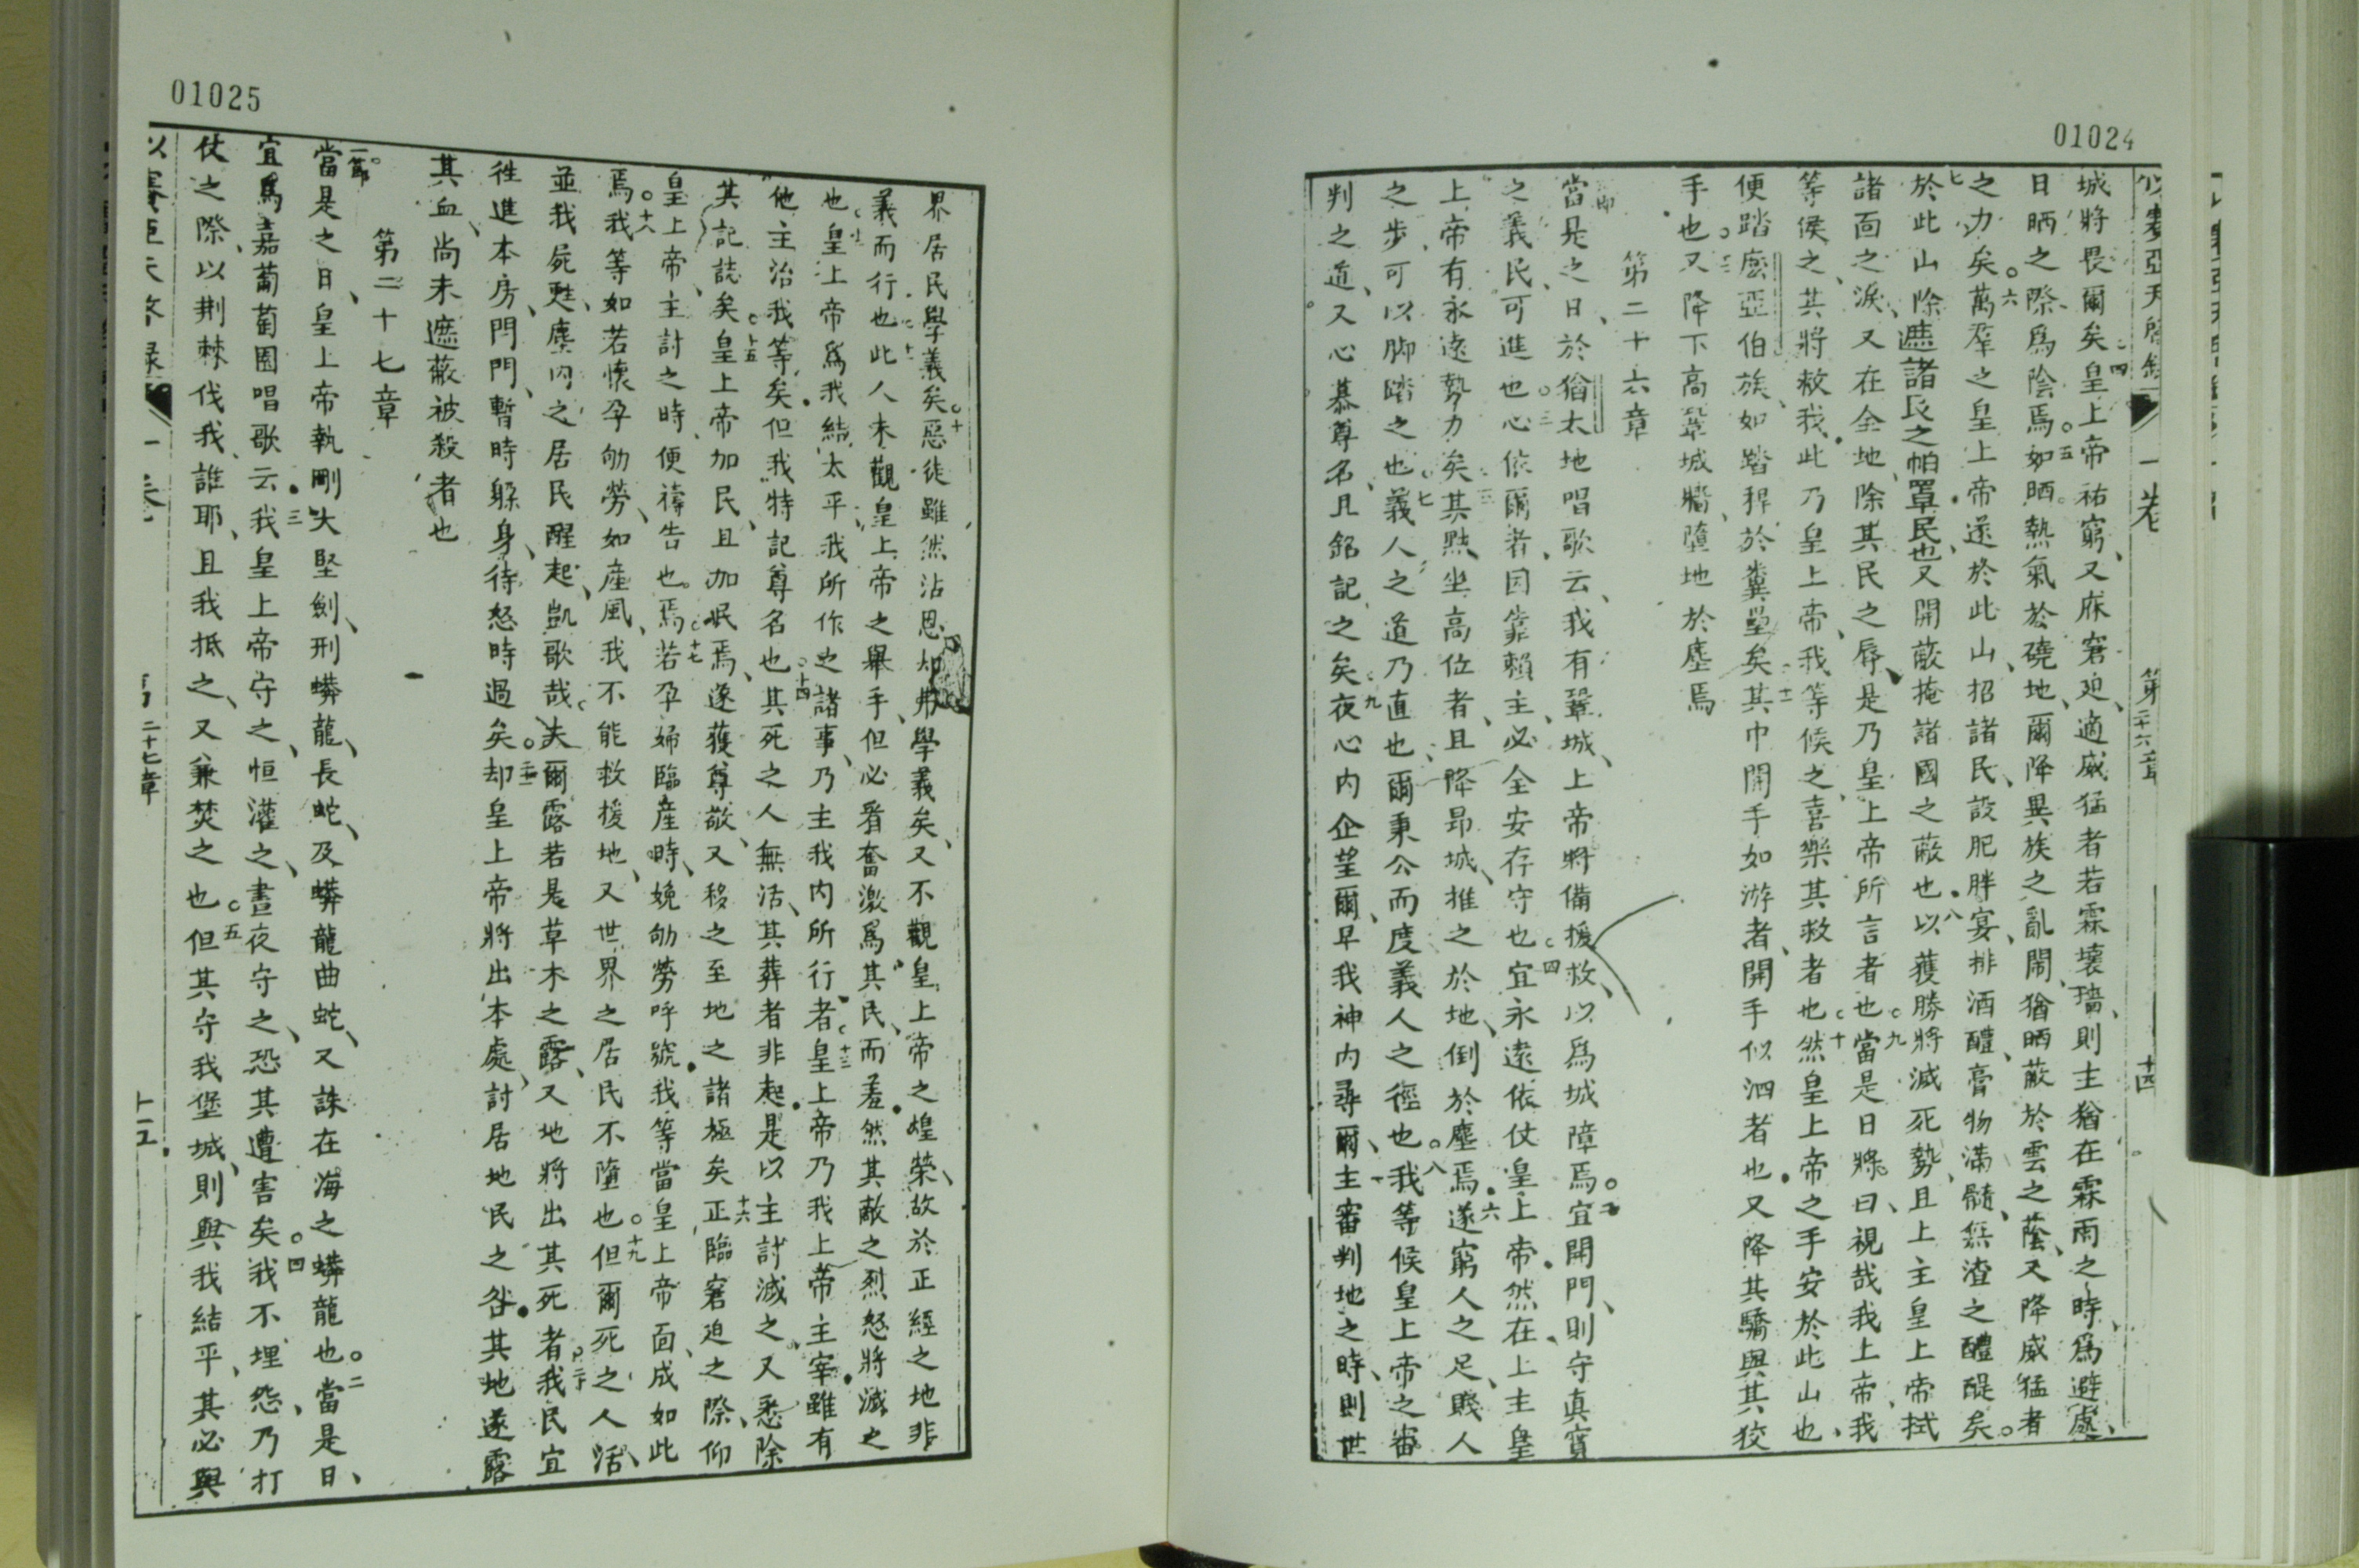 01024
以賽亞天啓錄
一卷
第二十六章
十四
城將畏爾矣四皇上帝祐窮又庥窘廹適威猛者若霖壞墻則主猶在霖雨之時爲避處
日晒之際爲陰焉五如晒熱氣於磽地爾降異族之亂鬧猶晒蔽於雲之蔭又降威猛者
之力矣六萬羣之皇上帝遂於此山招諸民設肥胖宴排酒醴膏物滿髓無渣之醴醍矣
七於此山除遮諸民之帕罩民也又開蔽掩諸國之蔽也八以獲勝將滅死勢且上主皇上帝拭
諸面之淚又在全地除其民之辱是乃皇上帝所言者也九當是日將曰視哉我上帝我
等侯之其將救我此乃皇上帝我等候之喜樂其救者也十然皇上帝之手安於此山也
便踏麼亞伯族如踏稈於糞壘矣十一其巾開手如游者開手似泅者也又降其驕與其狡
手也十二又降下高墓城牆墮地於塵焉
第二十六章
一節當是之日於猶太地唱歌云我有鞏城上帝將備援救以爲城障焉二宜開門則守真實
之義民可進也三心依爾者因靠賴主必全安存守也四宜永遠依仗皇上帝然在上主皇
上帝有永遠勢力矣五其黜坐高位者且降昂城推之於地倒於塵焉六遂窮人之足賤人
之步可以脚踏之也七義人之道乃直也爾秉公而度義人之徑也八我等候皇上帝之審
判之道又心慕尊名且銘記之矣九夜心內企望爾早我神內尋爾主審判地之時則世
01025
界居民學義矣十惡徒雖然沾恩却弗學義矣又不觀皇上帝之煌榮故於正經之地非
義而行也十一此人未觀皇上帝之舉手但必看奮激爲其民而羞然其敵之烈怒將滅之
也十二皇上帝爲我結太平我所作之諸事乃主我內所行者十三皇上帝乃我上帝主宰雖有
他主治我等矣但我特記尊名也十四其死之人無活其葬者非起是以主討滅之又悉除
其記誌矣十五皇上帝加民且加民焉遂獲尊敬又移之至地之諸極矣十六正臨窘迫之際仰
皇上帝主討之時便禱告也十七焉若孕婦臨產時娩劬勞呼號我等當皇上帝面成如此
焉十八我等如若懷孕劬勞如產風我不能救援地又世界之居民不墮也十九但爾死之人活
並我屍甦塵內之居民醒起凱歌哉夫爾露若是草木之露又地將出其死者二十我民宜
徃進本房門門暫時躱身待怒時過矣二十一却皇上帝將出本處討居地民之咎其地遂露
其血尚未遮蔽被殺者也
第二十七章
一節當是之日皇上帝執剛大堅劍刑蟒龍長蛇及蟒龍曲蛇又誅在海之蟒龍也二當是日
宜爲嘉葡萄園唱歌云三我皇上帝守之恒灌之晝夜守之恐其遭害矣四我不埋怨乃打
仗之際以荆棘伐我誰耶且我抵之又兼焚之也五但其守我堡城則與我結平其必與
以賽亞天啓錄
一卷
第二十七章
十五